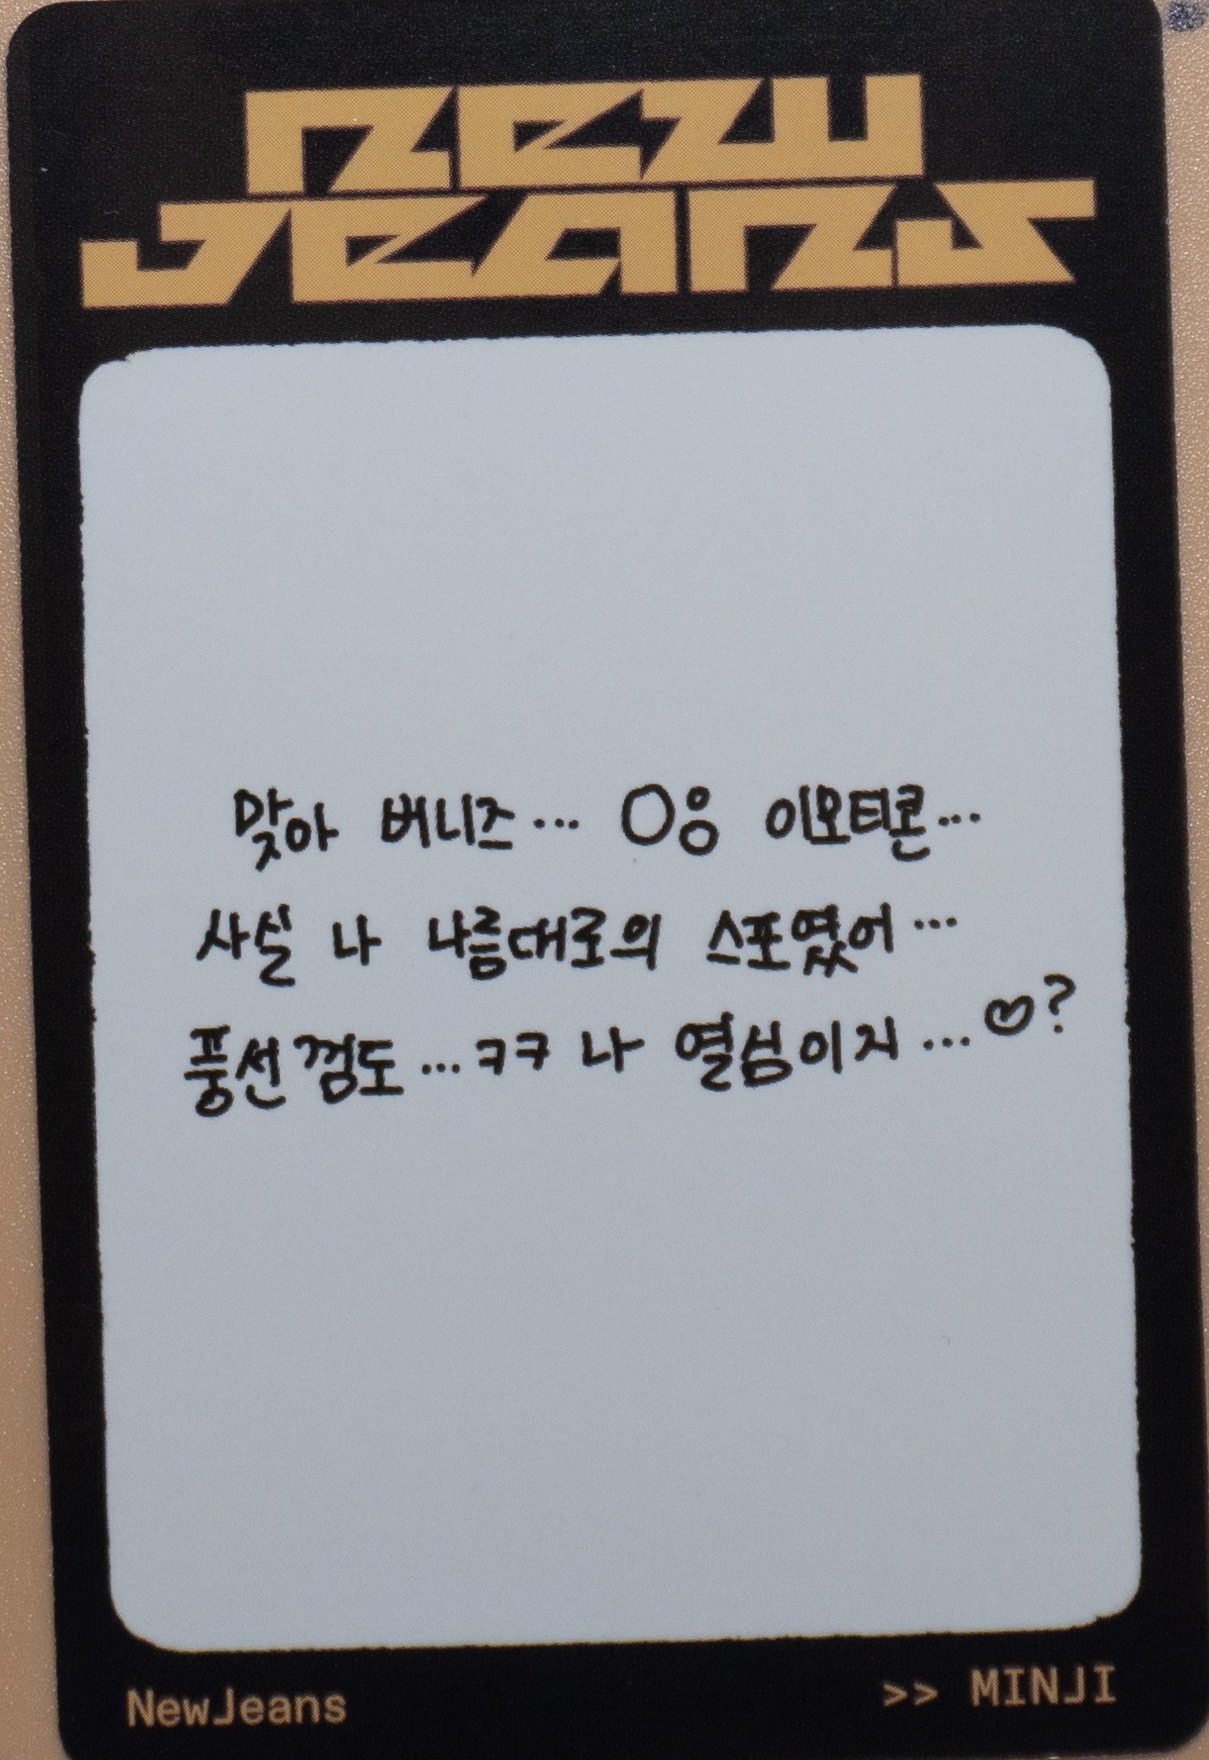 New
Jeans
맞아 버니즈... 이모티콘...
사실 나 나름대로의 스포였어...
풍선껌도...ㅋㅋ 나 열심이지...♡?
NewJeans
>> MINJI